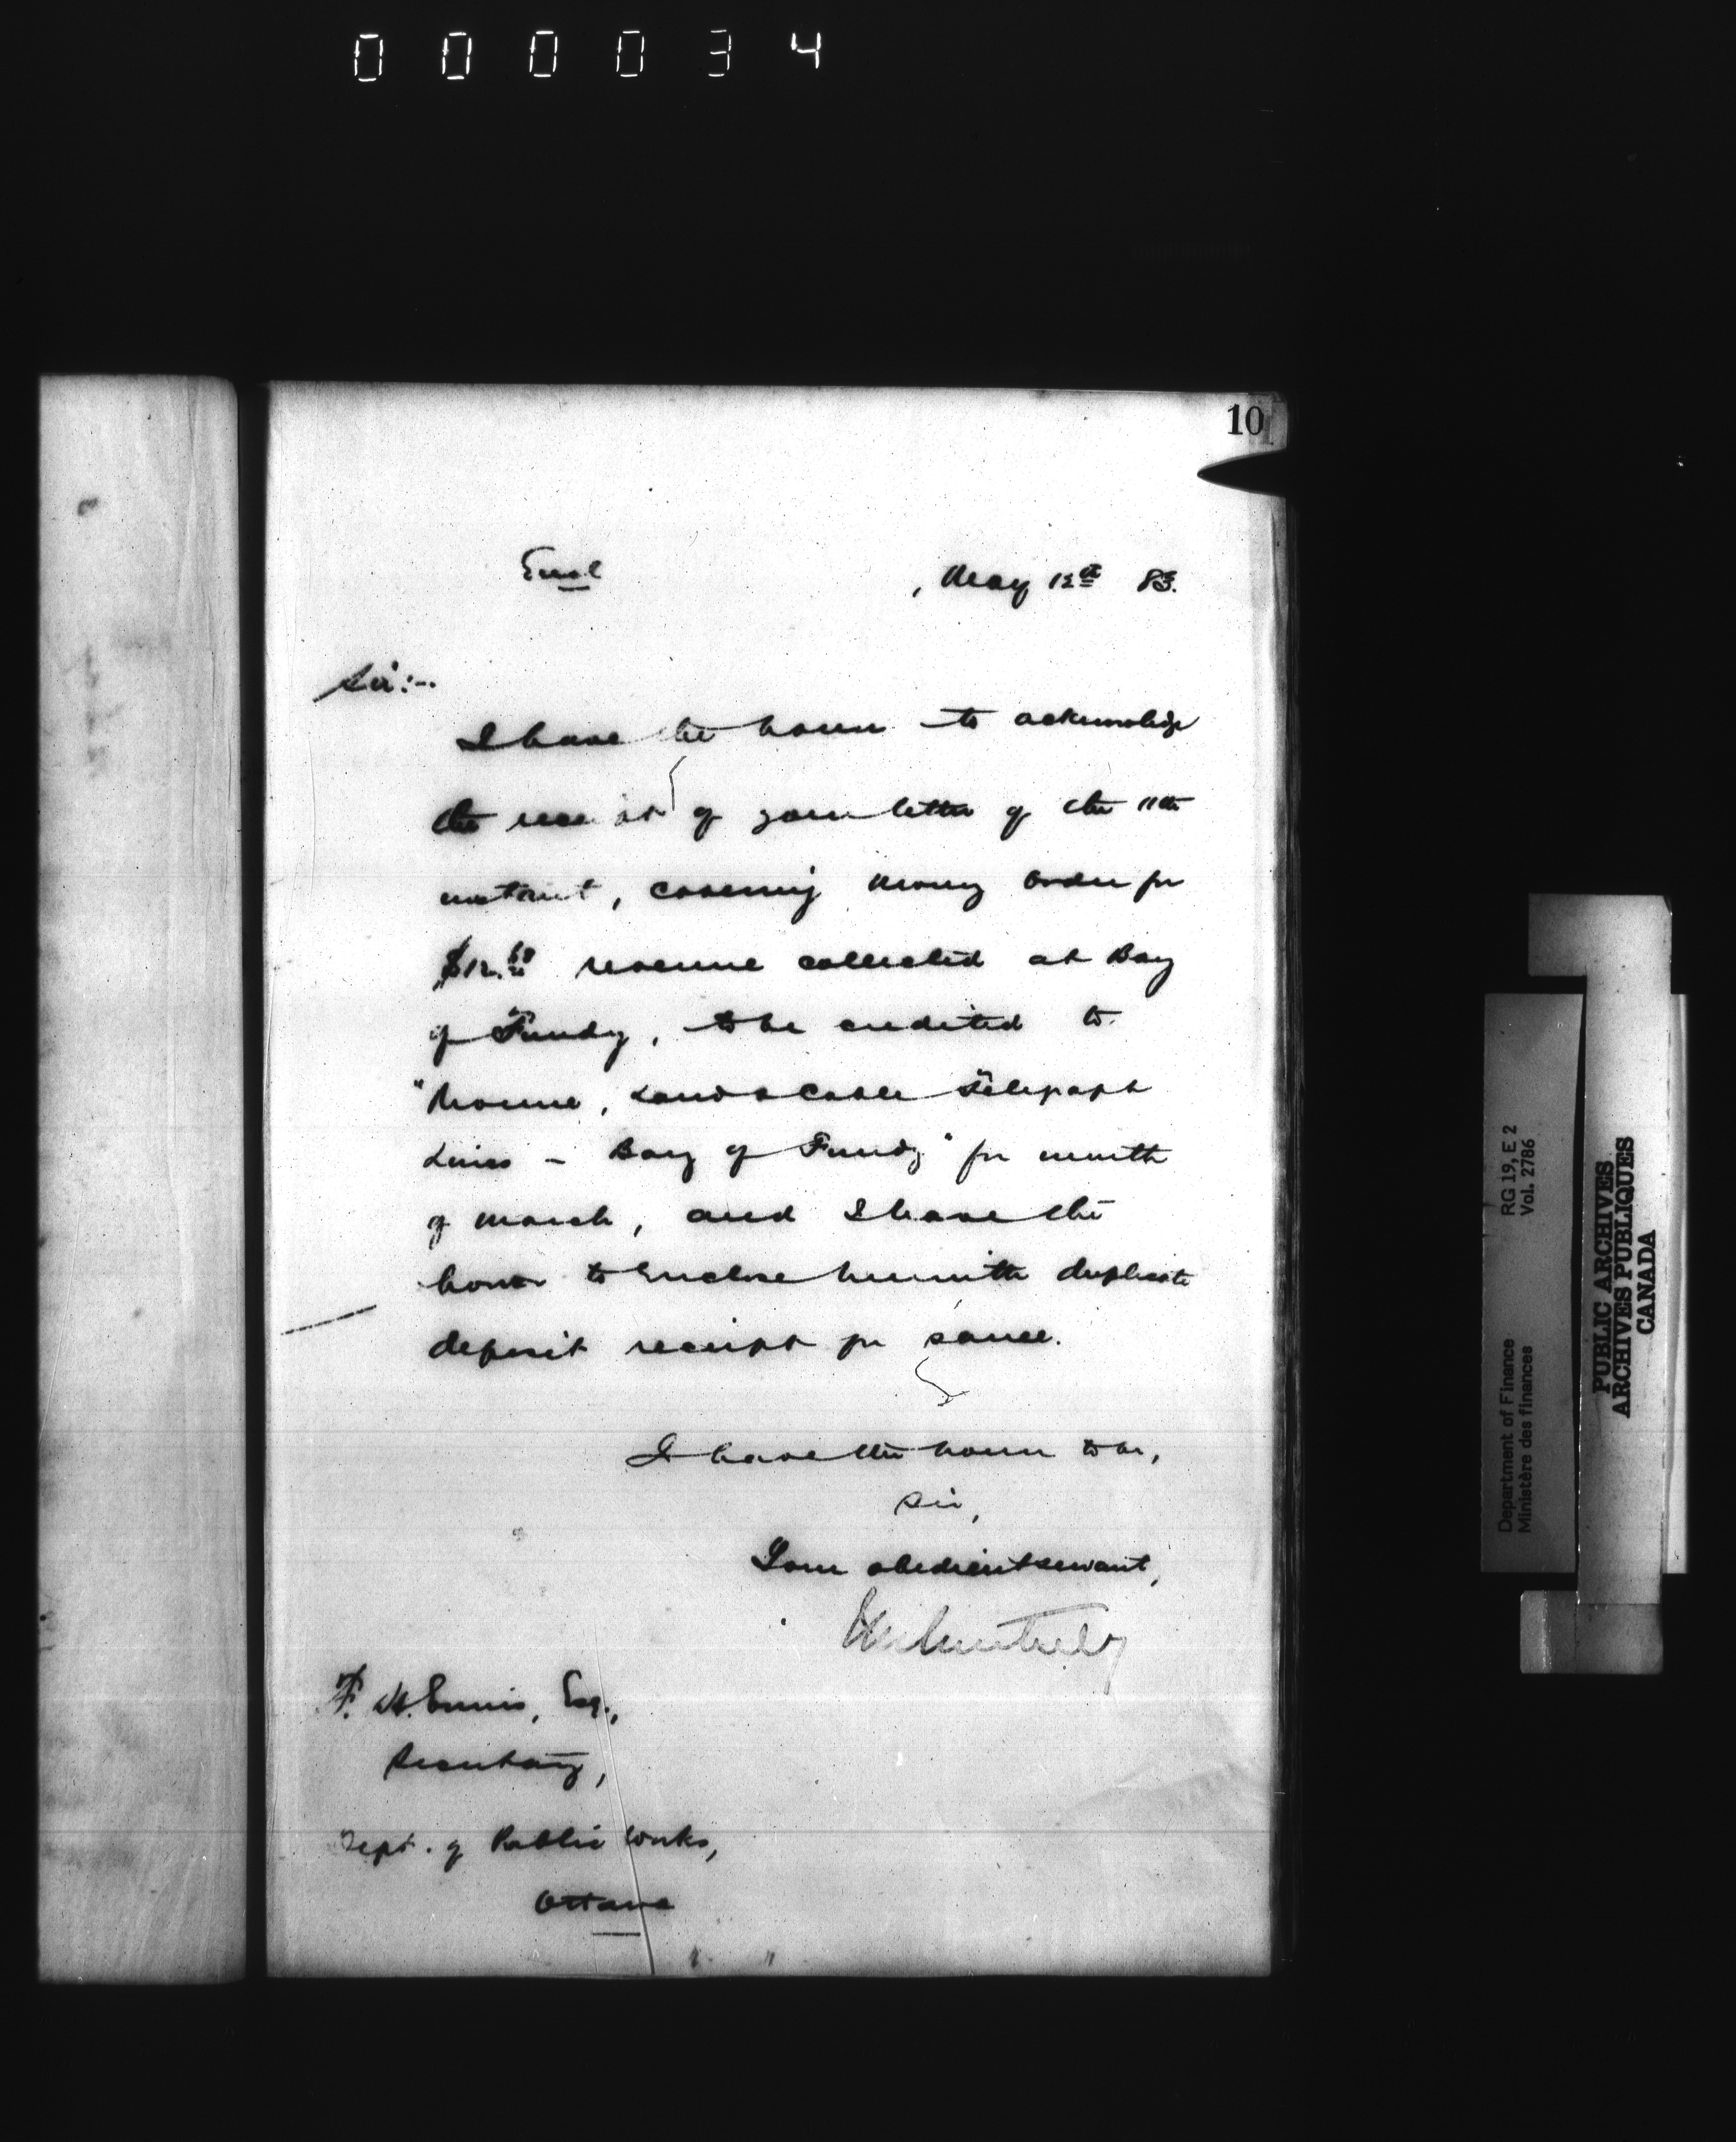 000034
10
Encl
, May 12th 83.
Sir:-
I have the honor to acknowledge
the receipt of your letter of the 11th
instant, covering Money Order for
$12.60 revenue collected at Bay
of Fundy, to be credited to
"Revenue, Land & Cable Telegraph
Lines - Bay of Fundy" for month
of March, and I have the
honor to enclose herewith duplicate
deposit receipt for same.
I have the honor to be,
Sir,
Your obedient servant,
F. H. Ennis, Esq.,
Secretary,
Dept. of Public Works,
Ottawa
Department of Finance RG 19, E 2
Ministère des finances Vol. 2786
PUBLIC ARCHIVES
ARCHIVES PUBLIQUES
CANADA